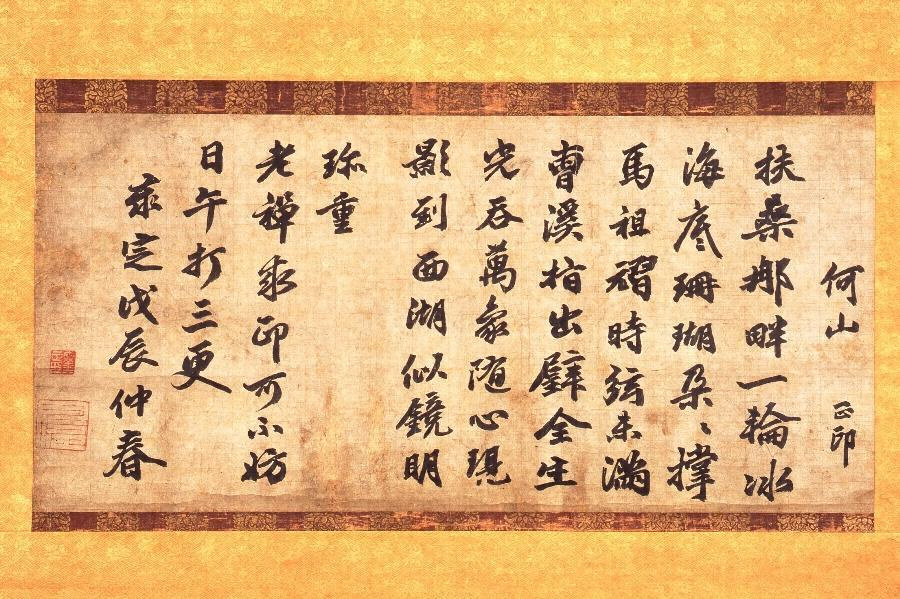 扶桑那畔一輪冰
海底珊瑚朵〻撑
馬祖翫時弦未滿
曹溪指出璧全生
光吞萬象随心現
影到西湖似鏡明
珎重
老禪求印可不妨
日午打三更
景定戊辰仲春
何山　正印